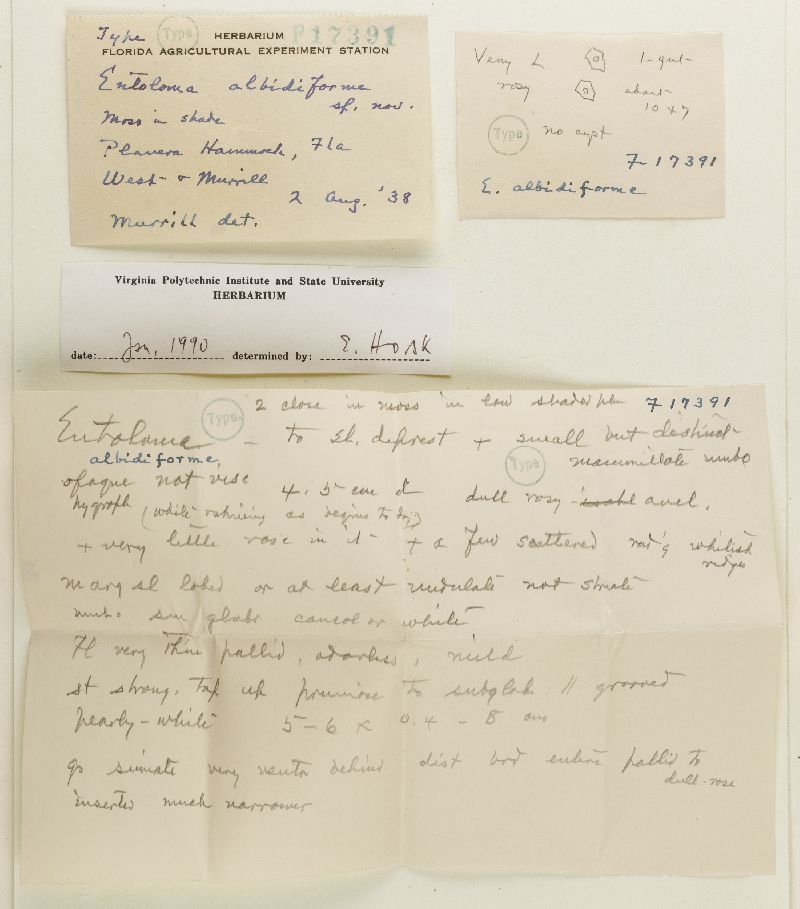 Type Type HERBARIUM F17391
FLORIDA AGRICULTURAL EXPERIMENT STATION
Entoloma albidiforme
sp. nov.
Moss in shade
Planera Hammock, Fla
West & Murrill
2 Aug. '38
Murrill det.
Very L 1-gut
rosy about
10 x 7
Type no cyst
F 17391
E. albidiforme
Virginia Polytechnic Institute and State University
HERBARIUM
date: Jan, 1990 determined by: E. Horak
2 close in moss in low shaded F 17391
Entoloma Type to sl. deprest + small but distinct
albidiforme, Type mammillate umbo
opaque not visc 4.5 cm d dull rosy avel.
hygroph (while shining as begins to dry)
+ very little rose in it + a few scattered rad'g whitish
ridges
marg sl lobed or at least undulate not striate
glabr concolor white
Fl very thin pallid, odorless, mild
st strong. tap up pruinose to subglab. // grooved
pearly-white 5-6 x 0.4-8 cm
gs sinuate very ventr behind dist brd entire pallid to
dull-rose
inserted much narrower